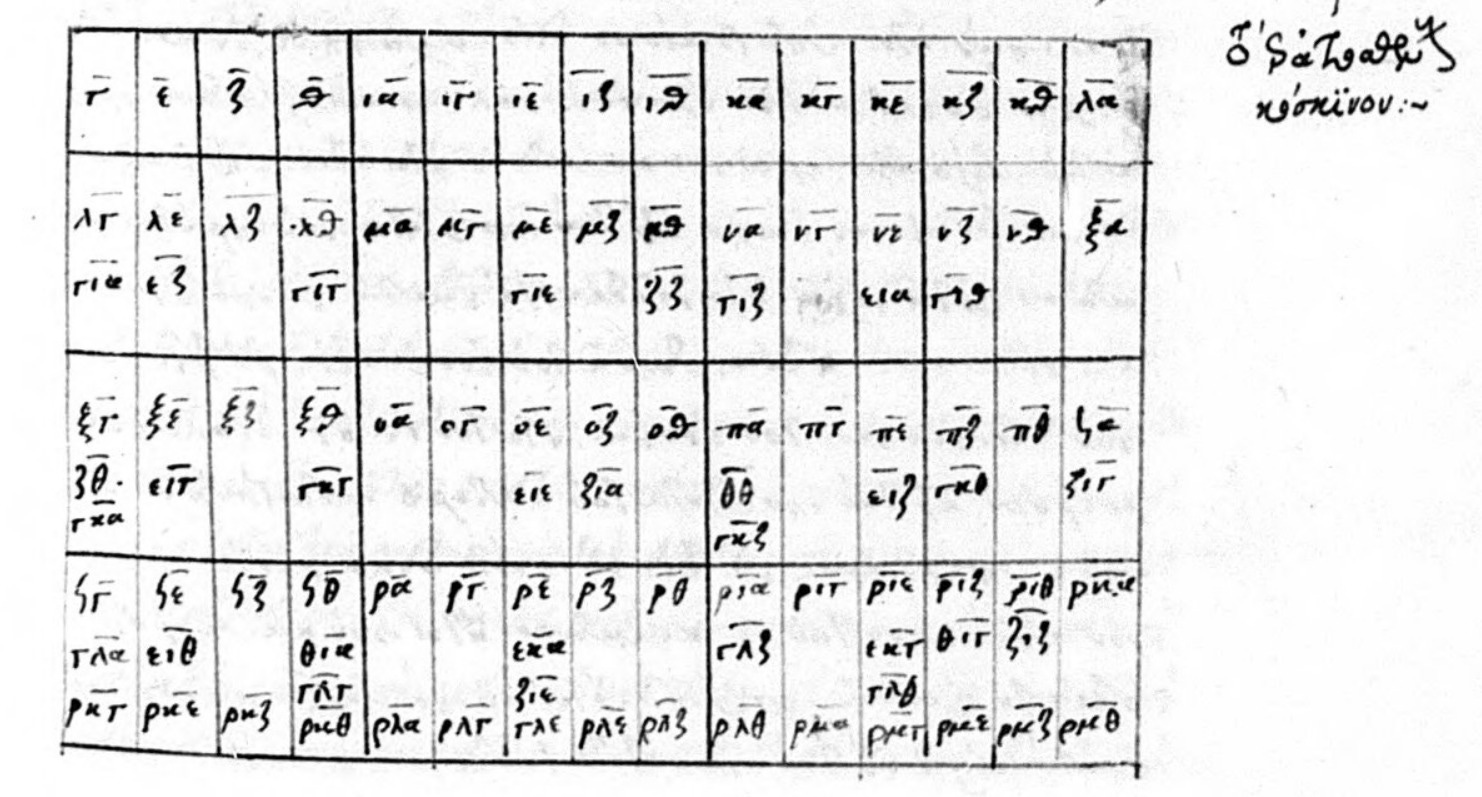 γ ε ζ θ ια ιγ ιε ιζ ιθ κα κγ κε κζ κθ λα
κόσκϊνον:~
λγ λε λζ λθ μα μγ με μζ μθ να νγ νε νζ νθ ξα
για εζ γιγ γιε ζζ γιζ εια γιθ
ξγ ξε ξζ ξθ οα ογ οε οζ οθ πα πγ πε πζ πθ ϟα
ζθ· ειγ γκγ ειε ζια θθ ειζ γκθ ζιγ
γκα γκζ
ϟγ ϟε ϟζ ϟθ ρα ργ ρε ρζ ρθ ρια ριγ ριε ριζ ριθ ρκα
γλα ειθ θια εκα γλζ εκγ θιγ ζιζ
γλγ ζιε γλθ
ρκγ ρκε ρκζ ρκθ ρλα ρλγ γλε ρλε ρλζ ρλθ ρμα ρμγ ρμε ρμζ ρμθ